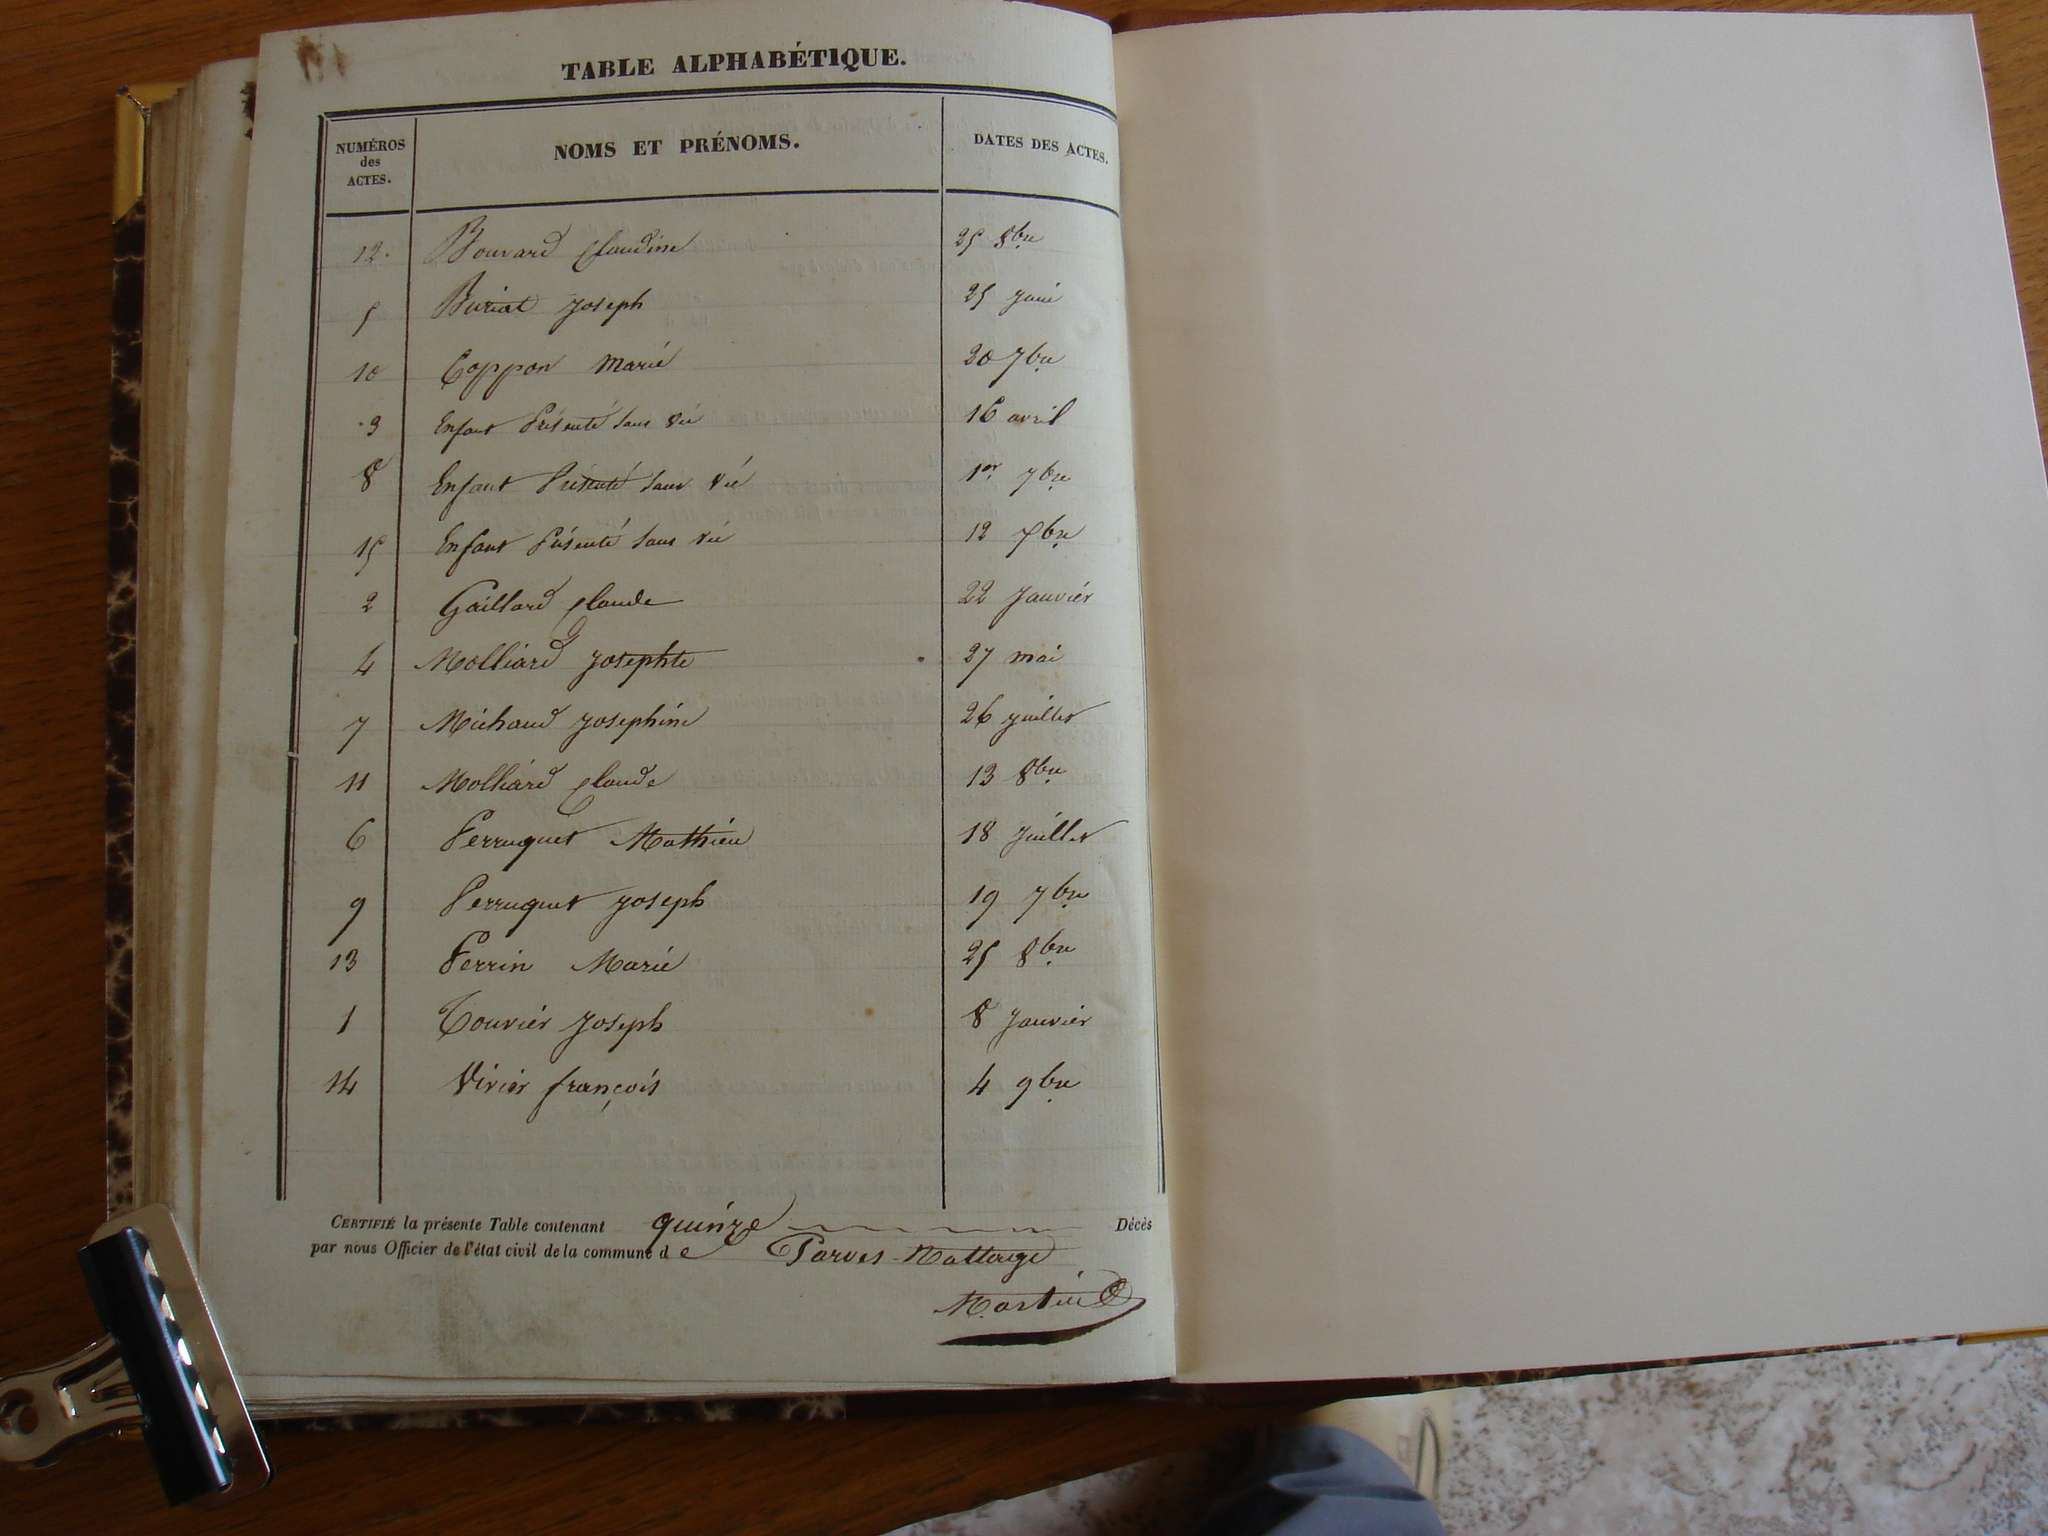 TABLE ALPHABÉTIQUE.
NUMÉROS des ACTES. NOMS ET PRÉNOMS. DATES DES ACTES.
12. Bouvard Claudine 25 8bre
5 Buriat Joseph 25 Juin
10 Coppon Marie 20 7bre
3 Enfant Présenté sans vie 16 avril
8 Enfant Présenté sans vie 1er 7bre
15 Enfant Présenté sans vie 12 bre
2 Gaillard Claude 22 Janvier
4 Molliard Josephte 27 mai
7 Michaud Josephine 26 juillet
11 Molliard Claude 13 8bre
6 Perruquet Mathieu 18 Juillet
9 Perruquet Joseph 19 7bre
13 Perrin Marie 25 8bre
1 Touvier Joseph 8 Janvier
14 Vivier françois 4 9bre
CERTIFIÉ la présente Table contenant quinze Décès
par nous Officier de l'état civil de la commune de Parves-Nattage
Martin